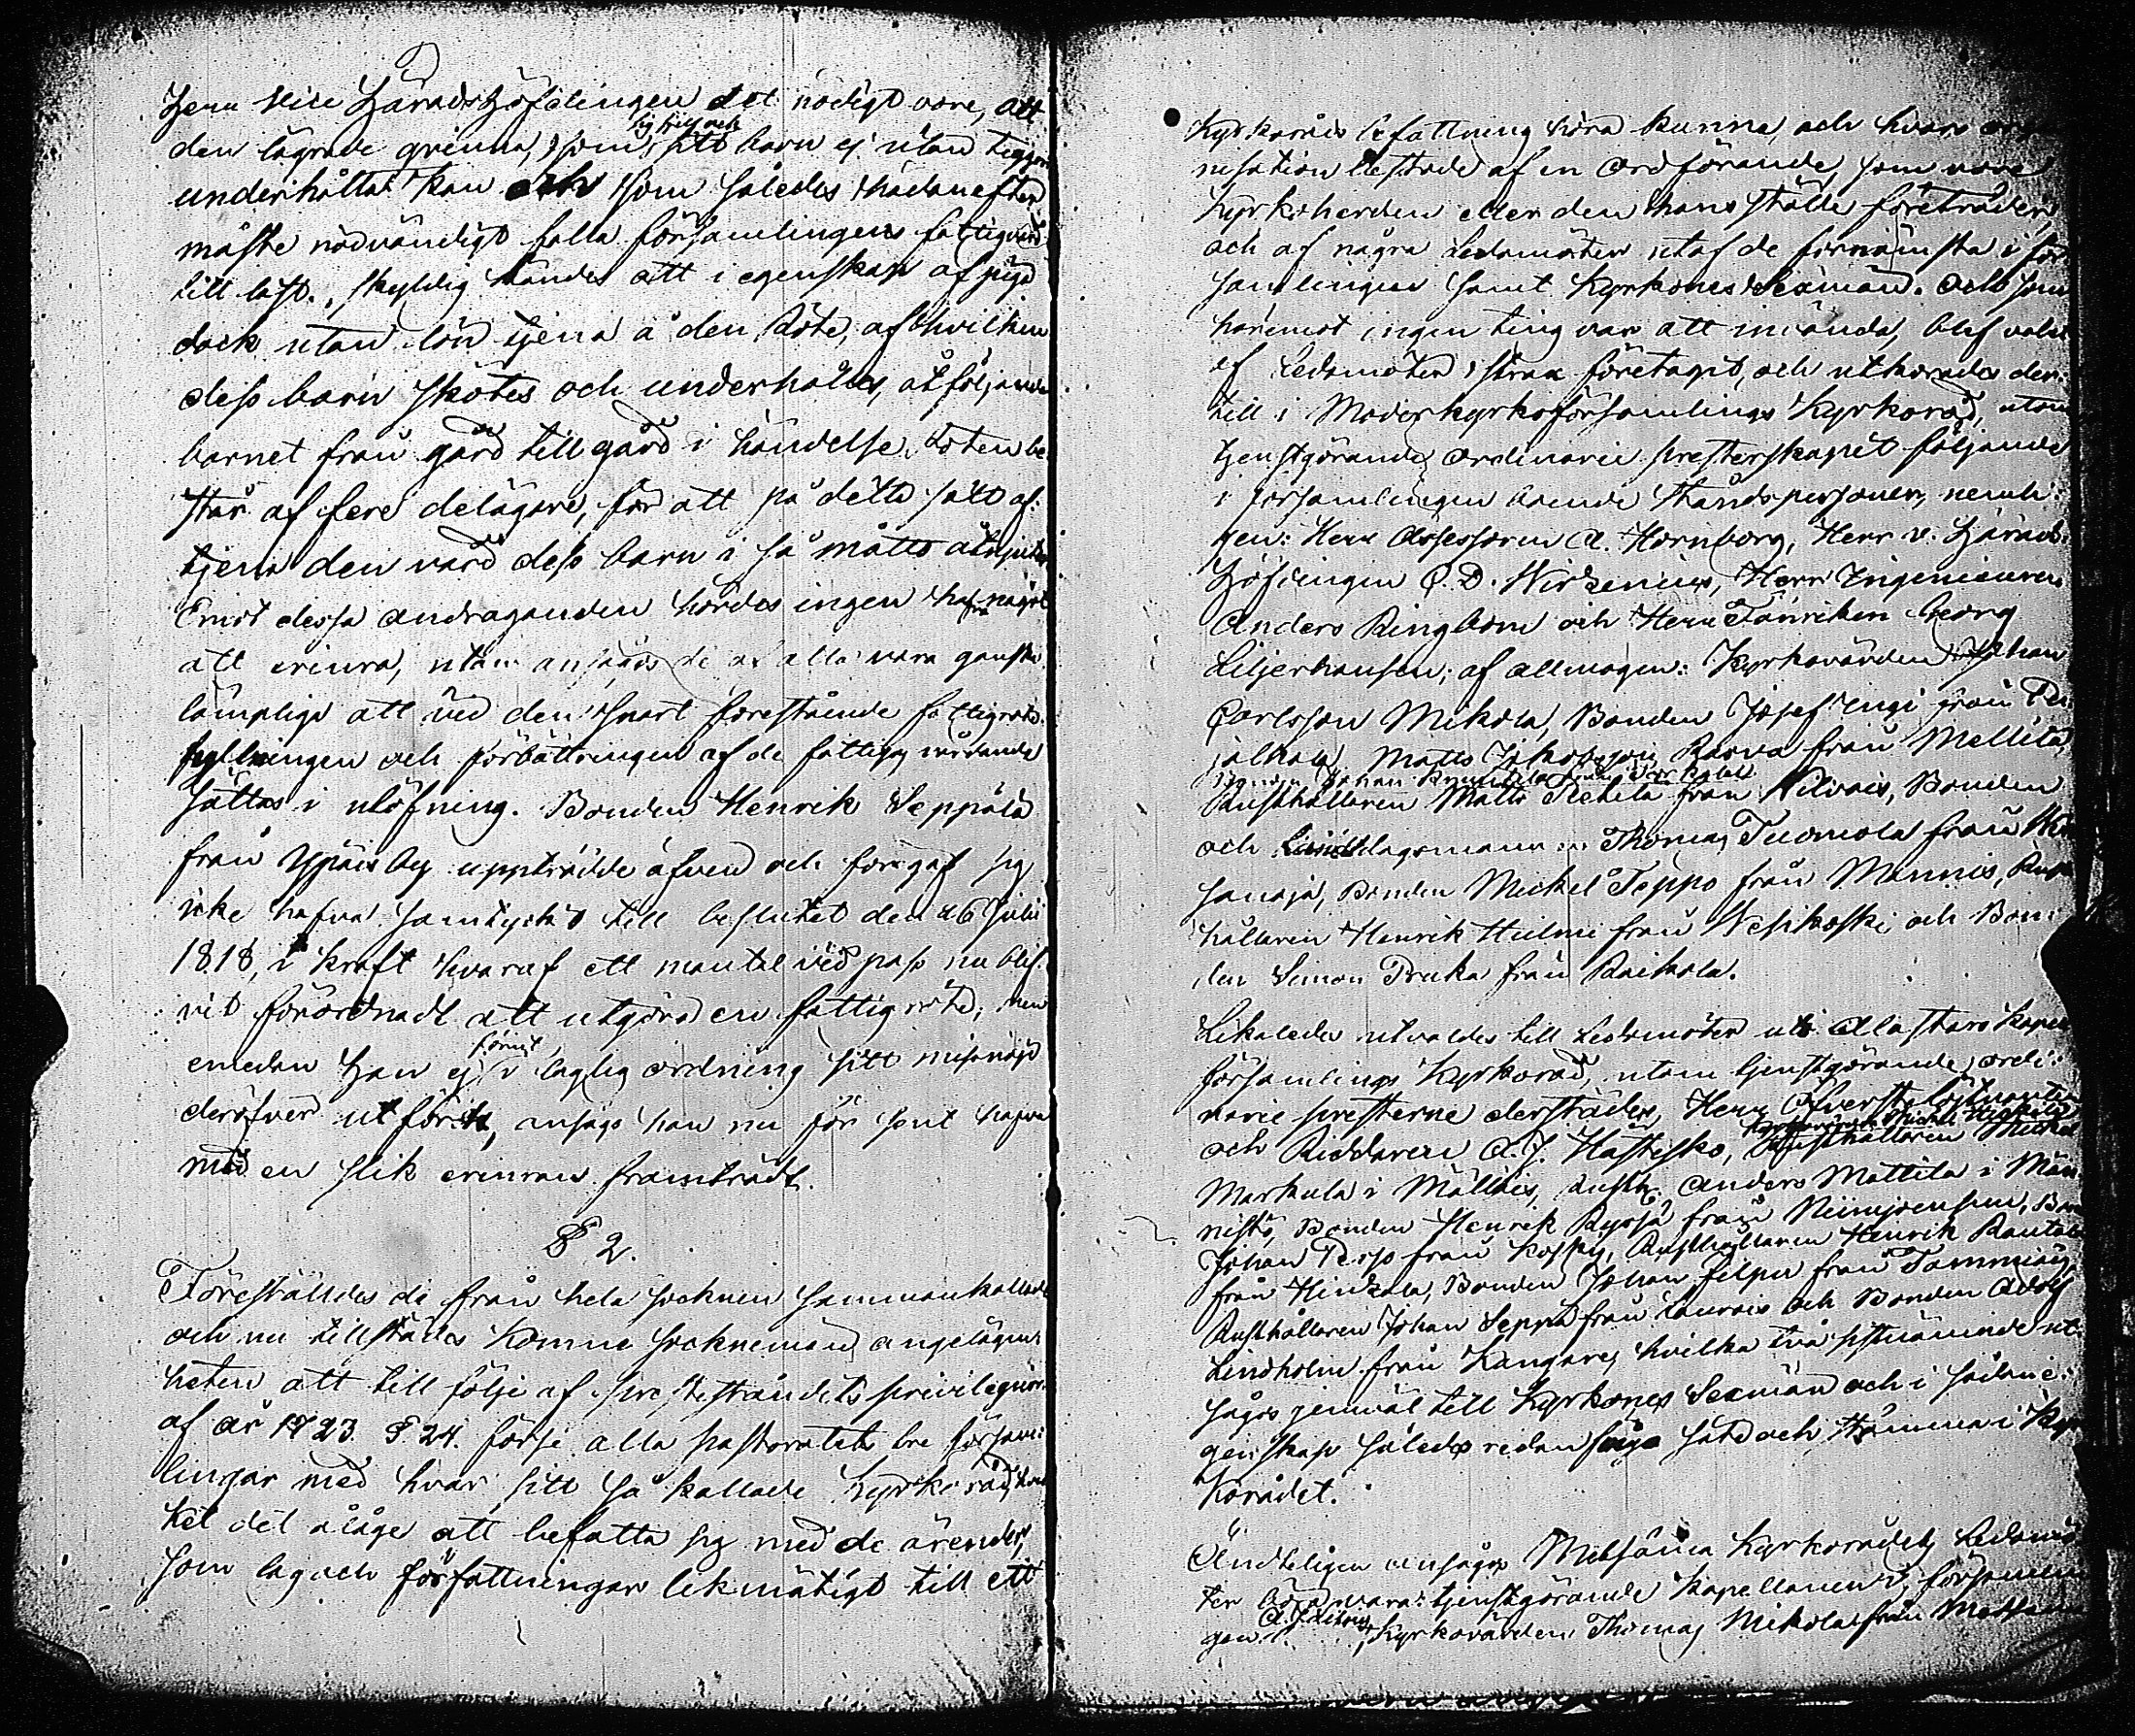 Herr Vice Häradshöfdingen det nödigt vore, att
den lägrade qvinna, som sig sjelf och sitt barn ej utan tiggeri
underhålla kan och som således hädanefter
måste nödvändigt falla församlingens fattigvård
till last, skyldig kändes att i egenskap af piga
dock utan lön tjena å den Rote, af hvilken
dess barn skötes och underhålles, åtföljande
barnet från gård till gård i händelse Roten be-
står af flere delägare, för att på detta sätt af-
tjena den vård dess barn i så måtto åtnjuter
Emot dessa andraganden hördes ingen hafva något
att erinra, utan ansågos de af alla vara ganska
lämpliga att vid den snart förestående fattigrote-
fyllningen och förbättringen af de fattigas vårdande
sättas i utöfning. Bonden Henrik Seppälä
från Ypäis by uppträdde äfven och föregaf sig
icke hafva samtyckt till beslutet den 26 Julii
1818, i kraft hvaraf ett mantal vid pass nu blif-
vit förordnadt att utgöra en fattigrote, men
emedan Han ej förut i laglig ordning sitt missnöje
deröfver utfört, ansågs han nu för sent hafva
med en slik erinran framträdt.
§ 2.
Föreställdes de från hela socknen sammankallade
och nu tillstädes komne sockenmän angelägen-
heten att till följe af Prestestandets privilegier
af år 1723 § 24. förse alla pastoratets tre försam-
lingar med hvar sitt så kallade Kyrkoråd, hvil-
ket det ålåge att befatta sig med de ärender,
som lag och författningar likmätigt till ett
Kyrkoråds befattning höra kunna, och hvars orga-
nisation bestode af en Ordförande, som vore
Kyrkoherden eller den hans ställe företräder,
och af några Ledamöter utaf de förnämsta i för-
samlingen samt Kyrkones Sexmän. Och som
häremot ingen ting var att invända, blef valet
af Ledamöter strax företagit, och utkorades der-
till i Moderkyrkoförsamlings Kyrkoråd, utom
tjenstgörande ordinarie presterskapet följande
i församlingen boende Ståndspersoner, nemli-
gen: Herr Assessoren A. Hornborg, Herr v. Härads-
Höfdingen C. D. Wirzenius, Herr Ingenieuren
Anders Ringbom och Herr Fänriken Georg
Liljerhausen; af allmogen: Kyrkovärden Johan
Carlsson Mikola, Bonden Josef Ingi från
Matts Jakobsson från Mellilä,
Rusthållaren Matts från Bonden
och Landtdagsmannen Thomas Tuomola från
Bonden Michel Teppo från Mannis, Rust-
hållaren Henrik Hulmi från Wesikoski och Bon-
den Simon Pruka från Raikola.
Likaledes utvaldes till Ledamöter uti Alastaro Kapell
församlings Kyrkoråd, utom tjenstgörande ordi-
narie presterne derstädes, Herr Öfverstelöjtnanten
och Riddaren A. J. Hästesko, Rusthållaren Michel
Markula i Mälläis, Rusth. Anders Mattila i Män-
nistö, Bonden Henrik Ryssä från Niinijoensuu, Bon
Johan Perss från Koski, Rusthållaren Henrik
från Hinzala, Bonden Johan Filpu från Tammiais,
Rusthållaren Johan Seppä från Laurois och Bonden Adolf
Lindholm från Kangare, hvilka två sistnämnde ut-
sågos jemväl till Kyrkones Sexmän och i sådan e-
genskap således redan äga säte och stämma i Kyr-
korådet.
Ändteligen ansågos Metsämaa Kyrkorådets Ledamö-
ter böra vara: tjenstgörande Kapellanen i församlin-
gen Kyrkovärden Thomas Mikola från